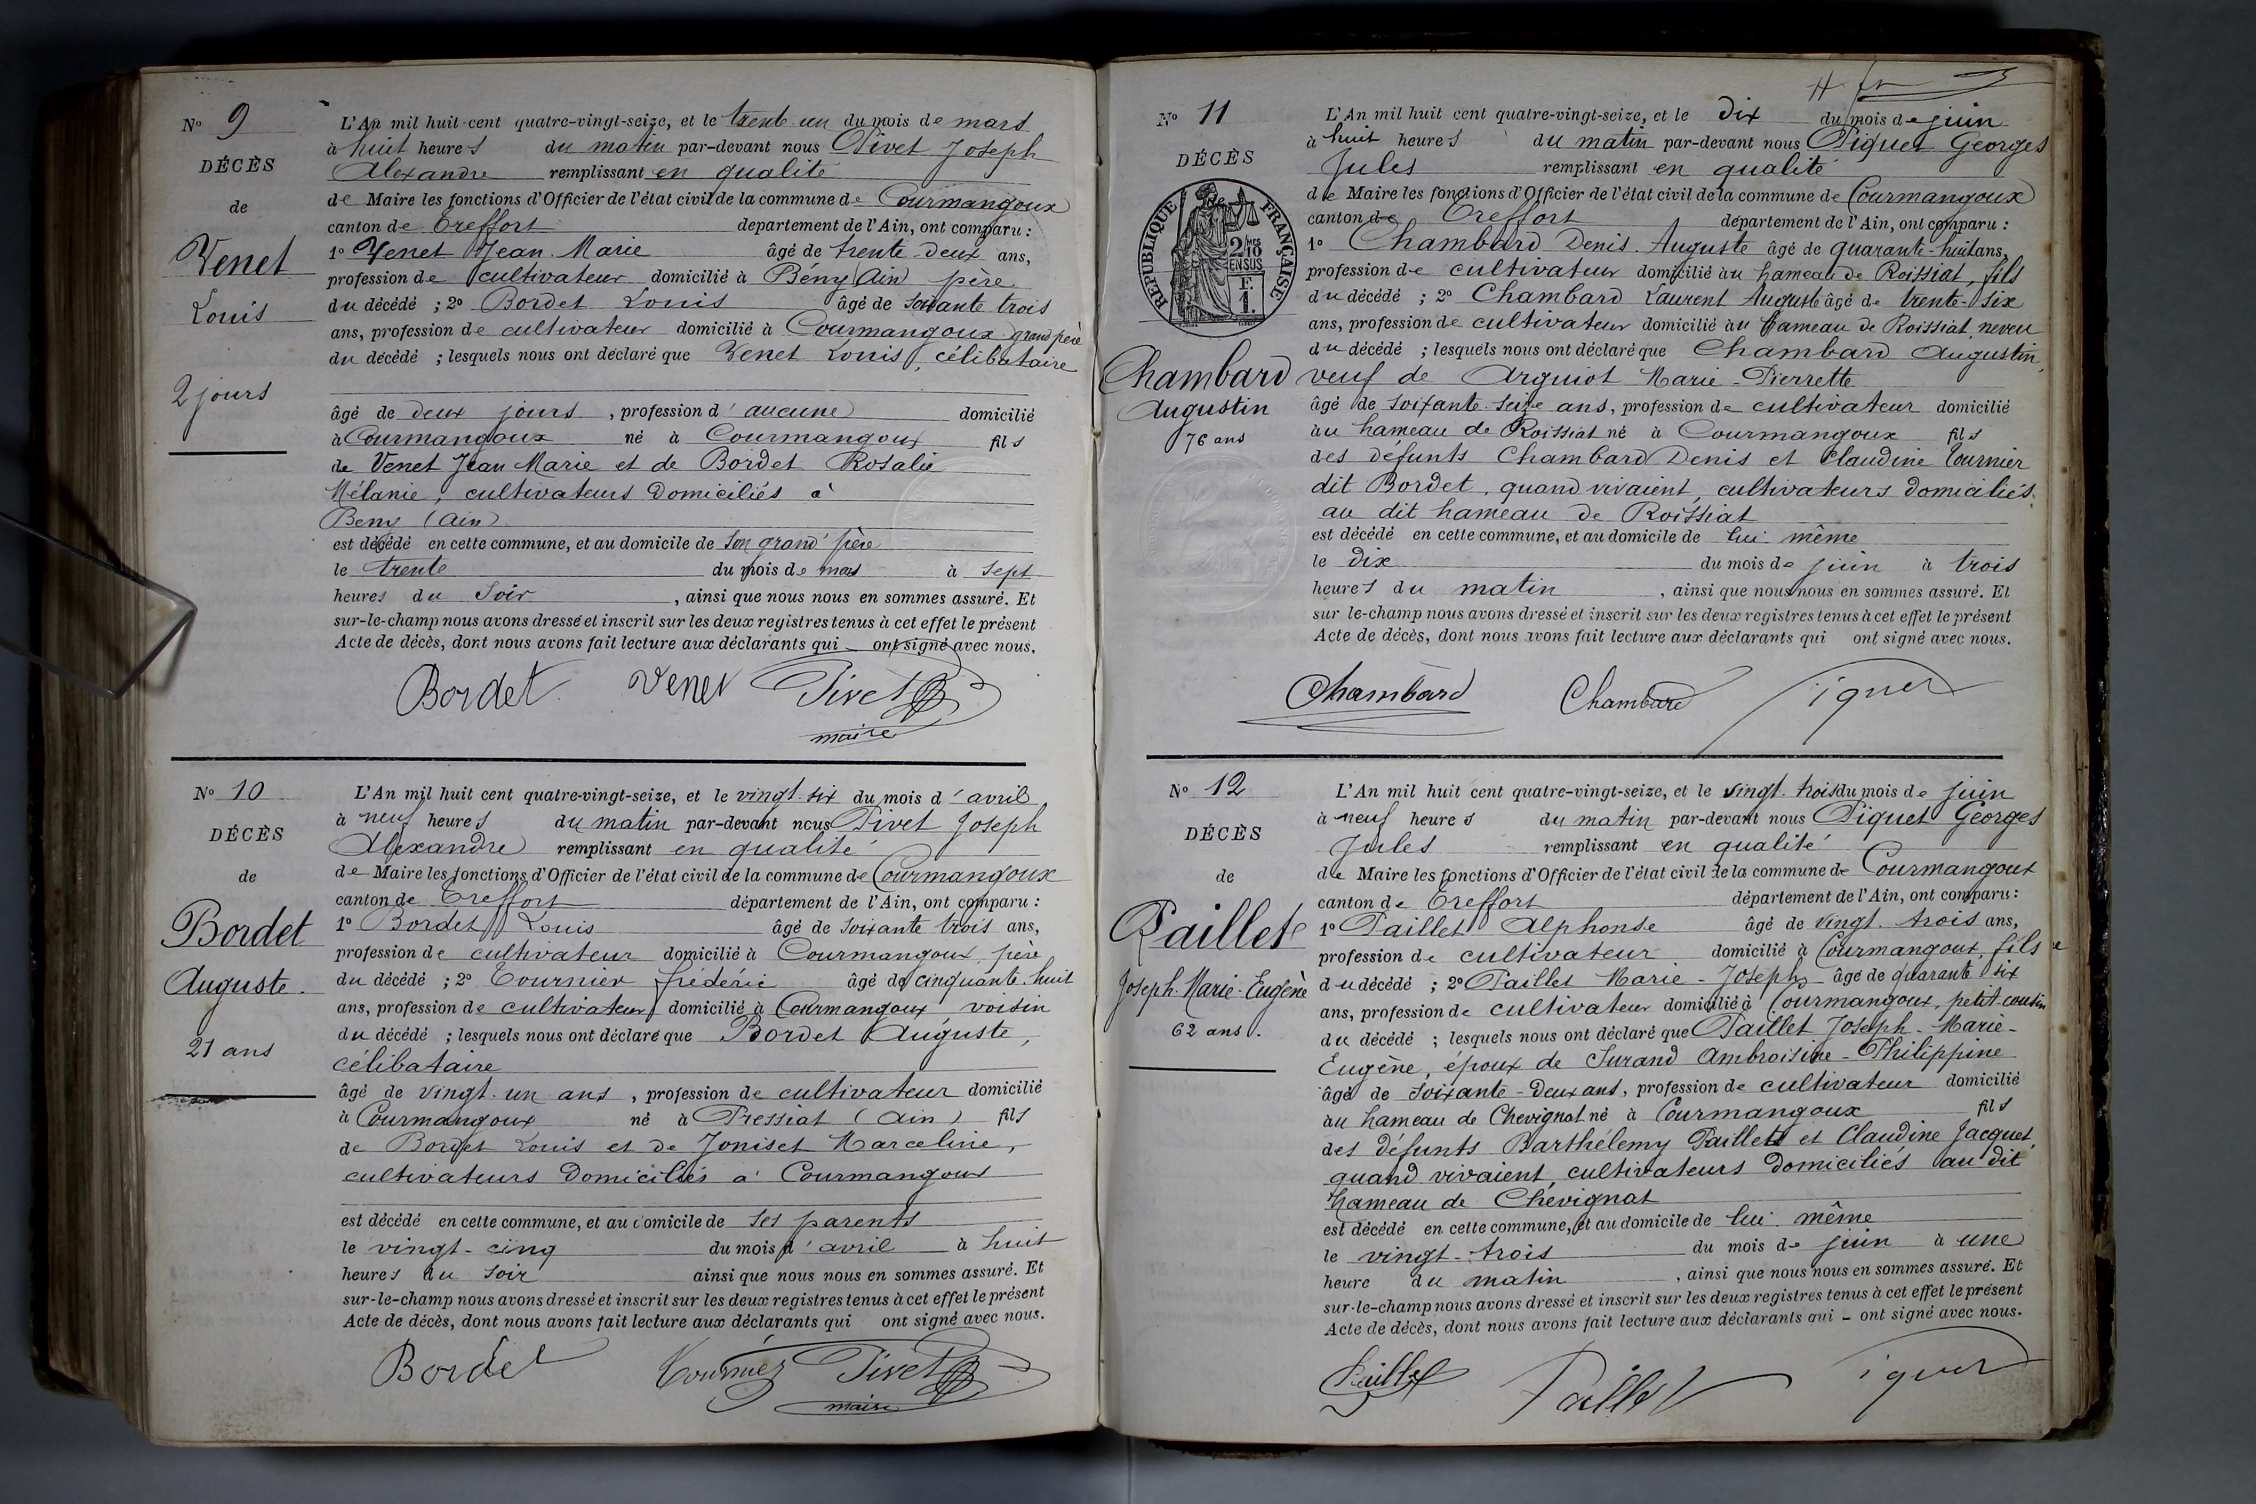 N° 9
DÉCÈS
de
Venet
Louis
2 jours
L'An mil huit cent quatre-vingt-seize, et le trente un du mois de mars
à huit heures du matin par-devant nous Pivet Joseph
Alexandre remplissant en qualité
de Maire les fonctions d'Officier de l'état civil de la commune de Courmangoux
canton de Treffort département de l'Ain, ont comparu :
1° Venet Jean Marie âgé de trente-deux ans,
profession de cultivateur domicilié à Bény (Ain) père
du décédé ; 2° Bordet Louis âgé de soixante trois
ans, profession de cultivateur domicilié à Courmangoux grand père
du décédé ; lesquels nous ont déclaré que Venet Louis, célibataire
âgé de deux jours, profession d'aucune domicilié
à Courmangoux né à Courmangoux fils
de Venet Jean Marie et de Bordet Rosalie
Mélanie, cultivateurs domiciliés à
Beny (Ain)
est décédé en cette commune, et au domicile de son grand père
le trente du mois de mars à sept
heures du soir, ainsi que nous nous en sommes assuré. Et
sur-le-champ nous avons dressé et inscrit sur les deux registres tenus à cet effet le présent
Acte de décès, dont nous avons fait lecture aux déclarants qui ont signé avec nous.
Bordet Venet Pivet
maire
N° 10
DÉCÈS
de
Bordet
Auguste.
21 ans
L'An mil huit cent quatre-vingt-seize, et le vingt-six du mois d'avril
à neuf heures du matin par-devant nous Pivet Joseph
Alexandre remplissant en qualité
de Maire les fonctions d'Officier de l'état civil de la commune de Courmangoux
canton de Treffort département de l'Ain, ont comparu :
1° Bordet Louis âgé de soixante trois ans,
profession de cultivateur domicilié à Courmangoux, père
du décédé ; 2° Tournier frédéric âgé de cinquante-huit
ans, profession de cultivateur domicilié à Courmangoux voisin
du décédé ; lesquels nous ont déclaré que Bordet Auguste,
célibataire
âgé de vingt-un ans, profession de cultivateur domicilié
à Courmangoux né à Pressiat (Ain) fils
de Bordet Louis et de Joniset Marceline,
cultivateurs domiciliés à Courmangoux
est décédé en cette commune, et au domicile de ses parents
le vingt-cinq du mois d'avril à huit
heures du soir ainsi que nous nous en sommes assuré. Et
sur-le-champ nous avons dressé et inscrit sur les deux registres tenus à cet effet le présent
Acte de décès, dont nous avons fait lecture aux déclarants qui ont signé avec nous.
Bordet Tournier Pivet
maire
N° 11
DÉCÈS
de
RÉPUBLIQUE FRANÇAISE
2/10 EN SUS
F. 1.
Chambard
Augustin
76 ans
L'An mil huit cent quatre-vingt-seize, et le dix du mois de juin
à huit heures du matin par-devant nous Piquet Georges
Jules remplissant en qualité
de Maire les fonctions d'Officier de l'état civil de la commune de Courmangoux
canton de Treffort département de l'Ain, ont comparu :
1° Chambard Denis-Auguste âgé de quarante-huit ans,
profession de cultivateur domicilié au hameau de Roissiat, fils
du décédé ; 2° Chambard Laurent Auguste âgé de trente-six
ans, profession de cultivateur domicilié au hameau de Roissiat neveu
du décédé ; lesquels nous ont déclaré que Chambard Augustin,
veuf de Arguiot Marie-Pierrette
âgé de soixante-seize ans, profession de cultivateur domicilié
au hameau de Roissiat né à Courmangoux fils
des défunts Chambard Denis et Claudine Tournier
dit Bordet, quand vivaient, cultivateurs domiciliés
au dit hameau de Roissiat
est décédé en cette commune, et au domicile de lui-même
le dix du mois de juin à trois
heures du matin, ainsi que nous nous en sommes assuré. Et
sur le-champ nous avons dressé et inscrit sur les deux registres tenus à cet effet le présent
Acte de décès, dont nous avons fait lecture aux déclarants qui ont signé avec nous.
Chambard Chambard Piquet
N° 12
DÉCÈS
de
Paillet
Joseph-Marie-Eugène
62 ans.
L'An mil huit cent quatre-vingt-seize, et le vingt-trois du mois de juin
à neuf heures du matin par-devant nous Piquet Georges
Jules remplissant en qualité
de Maire les fonctions d'Officier de l'état civil de la commune de Courmangoux
canton de Treffort département de l'Ain, ont comparu :
1° Paillet Alphonse âgé de vingt-trois ans,
profession de cultivateur domicilié à Courmangoux, fils
du décédé ; 2° Paillet Marie-Joseph âgé de quarante six
ans, profession de cultivateur domicilié à Courmangoux, petit-cousin
du décédé ; lesquels nous ont déclaré que Paillet Joseph-Marie-
Eugène, époux de Surand Ambroisine-Philippine
âgé de soixante-deux ans, profession de cultivateur domicilié
au hameau de Chevignat né à Courmangoux fils
des défunts Barthélemy Paillet et Claudine Jacquet,
quand vivaient, cultivateurs domiciliés au dit
hameau de Chevignat
est décédé en cette commune, et au domicile de lui-même
le vingt-trois du mois de juin à une
heure du matin, ainsi que nous nous en sommes assuré. Et
sur-le-champ nous avons dressé et inscrit sur les deux registres tenus à cet effet le présent
Acte de décès, dont nous avons fait lecture aux déclarants qui - ont signé avec nous.
Paillet Paillet Piquet